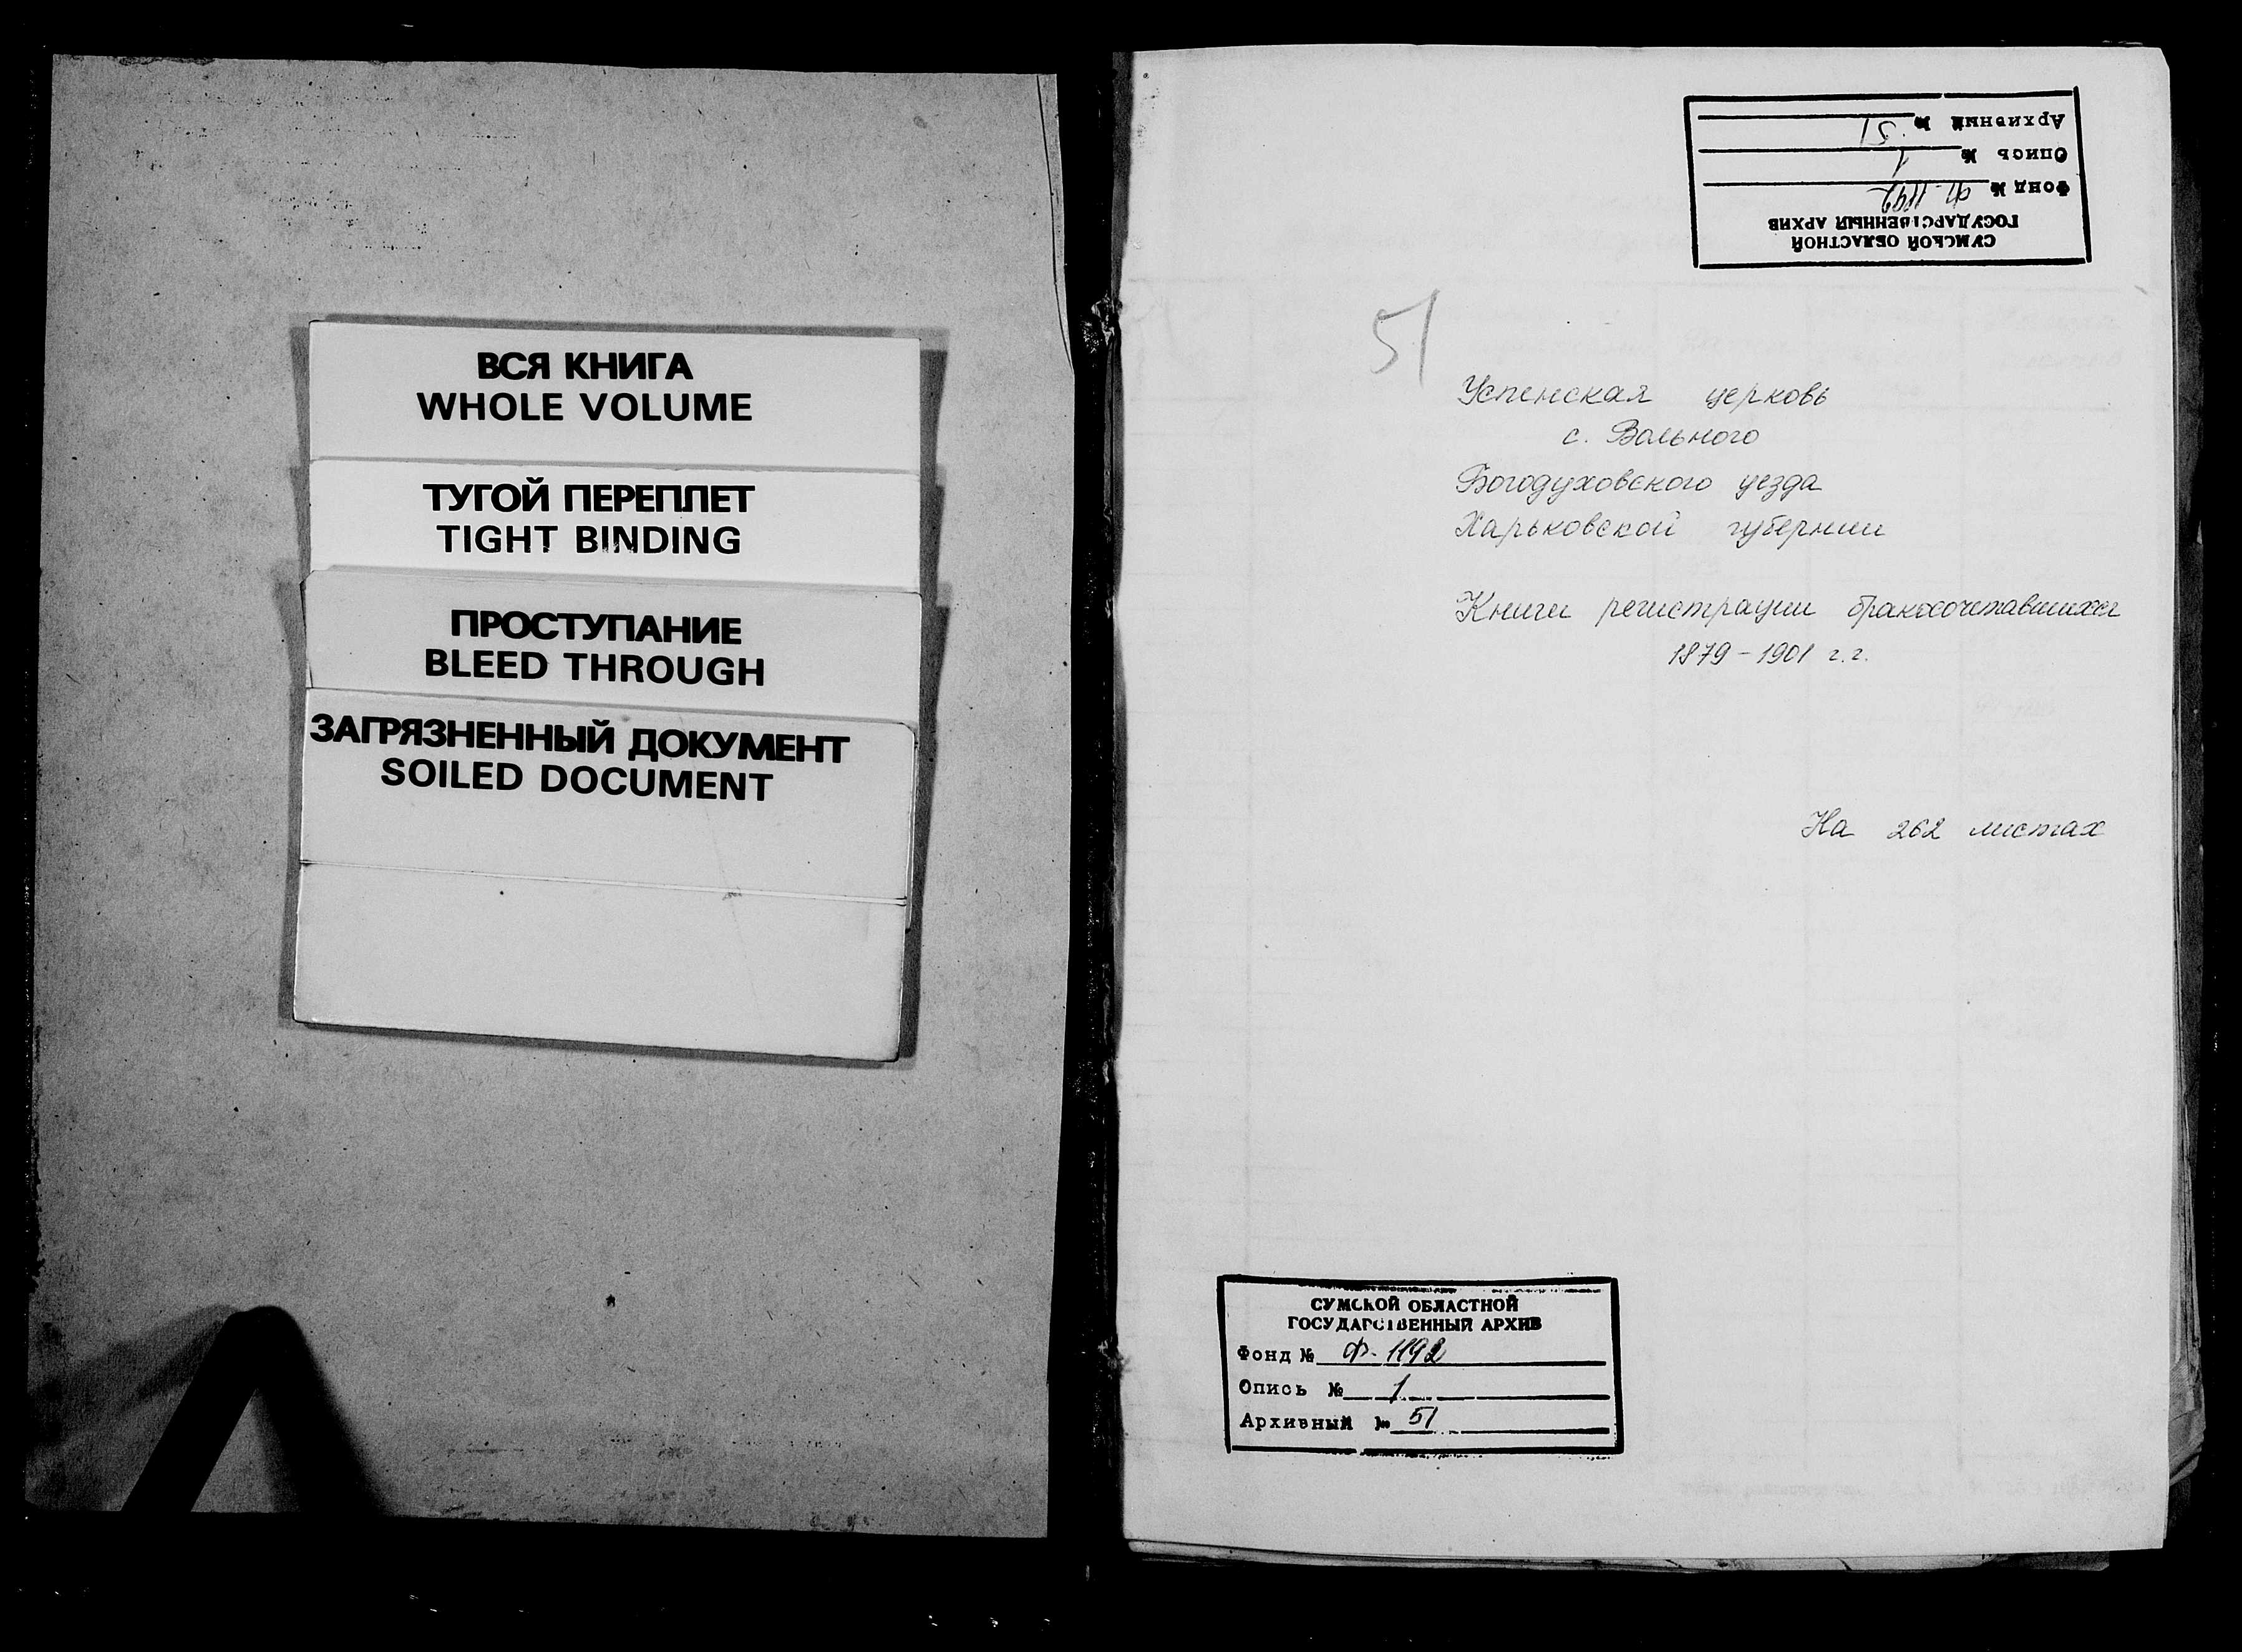 ВСЯ КНИГА
WHOLE VOLUME
ТУГОЙ ПЕРЕПЛЕТ
TIGHT BINDING
ПРОСТУПАНИЕ
BLEED THROUGH
ЗАГРЯЗНЕННЫЙ ДОКУМЕНТ
SOILED DOCUMENT
СУМСКОЙ ОБЛАСТНОЙ
ГОСУДАРСТВЕННЫЙ АРХИВ
Фонд № Ф-1192
Опись № 1
Архивный № 51
51
Успенская церковь
с. Вольного
Богодуховского уезда
Харьковской губернии
Книги регистрации бракосочетавшихся
1879-1901 г.г.
На 262 листах
СУМСКОЙ ОБЛАСТНОЙ
ГОСУДАРСТВЕННЫЙ АРХИВ
Фонд № Ф-1192
Опись № 1
Архивный № 51